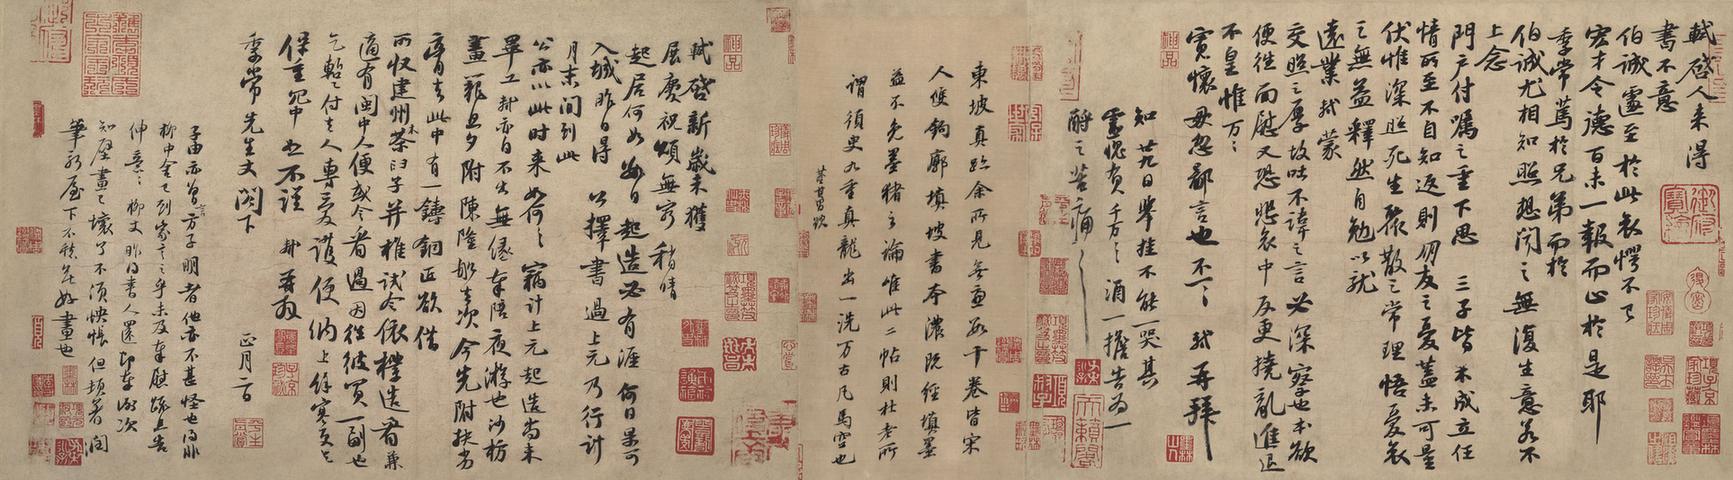 軾啓人來得
書不意
伯誠遽至於此哀愕不已
宏才令德百未一報而止於是耶
季常篤於兄弟而於
伯誠尤相知照想聞之無復生意若不
上念
門户付囑之重下思三子皆未成立任
情所至不自知返則朋友之憂蓋未可量
伏惟深照死生聚散之常理悟憂哀
之無益釋然自勉以就
遠業軾蒙
交照之厚故吐不諱之言必深察也本欲
便往面慰又恐悲哀中反更撓亂進退
不皇惟萬〻
寬懷毋忽鄙言也不一〻軾再拜
知廿九日舉挂不能一哭其
靈愧負千万〻酒一擔告為一
酹之苦痛〻
東坡真跡余所見無慮數十卷皆宋
人雙鉤廓填坡書本濃既經填墨
益不免墨豬之論唯此二帖則杜老所
謂須臾九重真龍出一洗万古凡馬空也
董其昌跋
軾啓新歲未獲
展慶祝頌無窮稍晴
起居何如數日起造必有涯何日果可
入城昨日得公擇書過上元乃行計
月末間到此
公亦以此時來如何〻竊計上元起造尚未
畢工軾亦自不出無緣奉陪夜游也沙枋
畫籠旦夕附陳隆船去次今先附扶劣
膏去此中有一鑄銅匠欲借
所收建州木茶臼子并椎試令依樣造看兼
適有閩中人便或令看過因往彼買一副也
乞暫付去人專愛護便納上餘寒更乞
保重冗中恕不謹軾再拜
季常先生丈閣下正月二日
子由亦曾言方子明者他亦不甚怪也得非
柳中舍已到家言之乎未及奉慰疏且告
伸意〻柳丈昨得書人還即奉謝次
知壁畫已壞了不須怏悵但頓著潤
筆新屋下不愁無好畫也